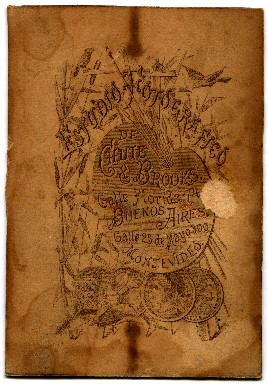 ESTUDIO FOTOGRAFICO
DE
CHUTE
& BROOKS.
Calle Florida
BUENOS AIRES.
Calle 25 de Mayo 300
MONTEVIDEO.